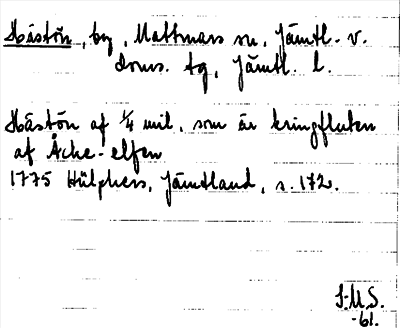 Håstön, by, Mattmars sn, Jämtl. v.
doms. tg, Jämtl. l.
Håstön af 1/4 mil, som är kringfluten
af Åche-elfen
1775 Hülphers, Jämtland, s. 172.
S.M.S.
-61.